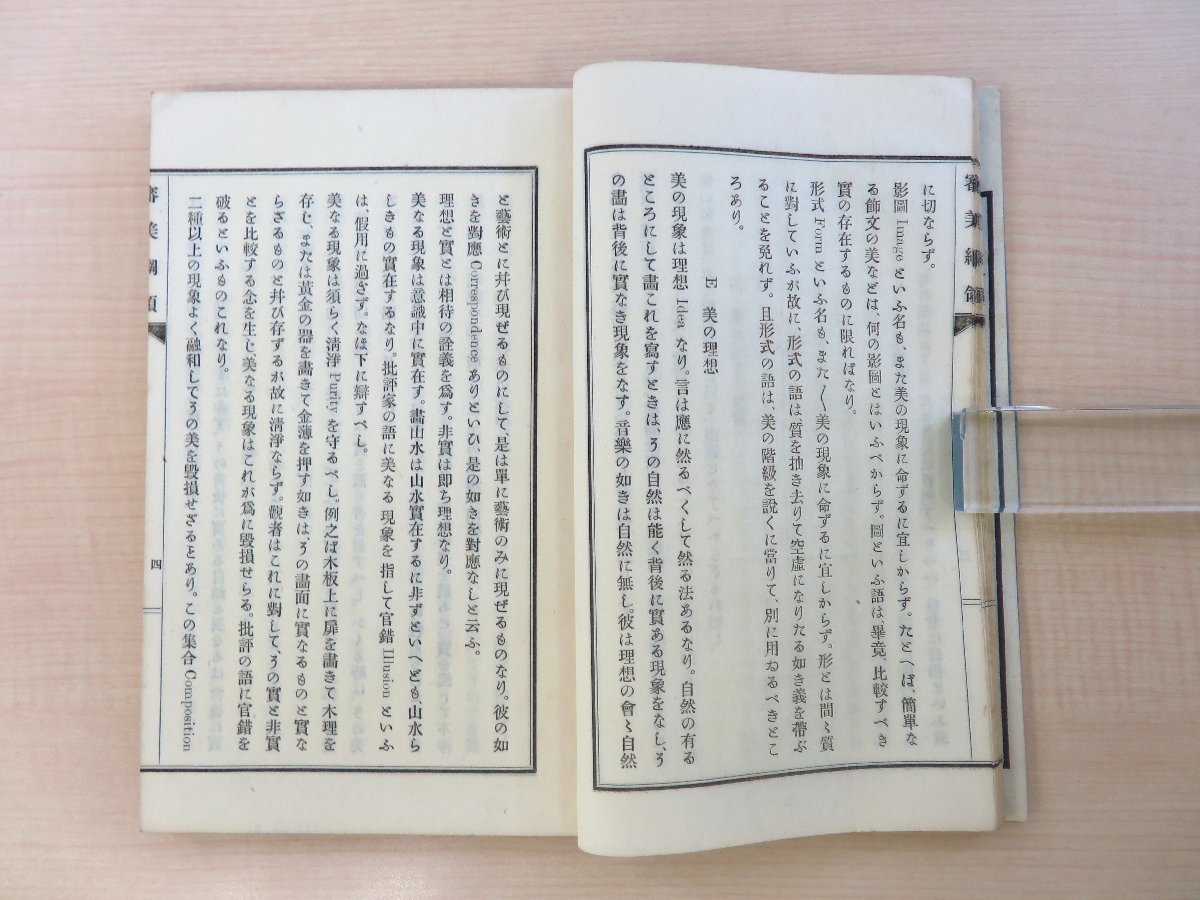 審美綱領
に切ならず。
影圖 Image といふ名も、また美の現象に命ずるに宜しからず。たとへば、簡單な
る飾文の美などは、何の影圖とはいふべからず。圖といふ語は、畢竟、比較すべき
實の存在するものに限ればなり。
形式 Form といふ名も、また〱美の現象に命ずるに宜しからず。形とは間〻質
に對していふが故に、形式の語は、質を抽き去りて空虚になりたる如き義を帶ぶ
ることを免れず。且形式の語は、美の階級を說くに當りて、別に用ゐるべきとこ
ろあり。
E 美の理想
美の現象は理想 Idea なり。言は應に然るべくして然る法あるなり。自然の有る
ところにして畵これを寫すときは、その自然は能く背後に實ある現象をなし、そ
の畵は背後に實なき現象をなす。音樂の如きは自然に無し。彼は理想の會〻自然
と藝術とに幷び現ぜるものにして、是は單に藝術のみに現ぜるものなり。彼の如
きを對應 Correspondence ありといひ、是の如きを對應なしと云ふ。
理想と實とは相待の詮義を爲す。非實は即ち理想なり。
美なる現象は意識中に實在す。畵山水は山水實在するに非ずといへども、山水ら
しきもの實在するなり。批評家の語に美なる現象を指して官錯 Illusion といふ
は、假用に過ぎず。なほ下に辯ずべし。
美なる現象は須らく淸淨 Purity を守るべし。例之ば木板上に扉を畵きて木理を
存じ、または黃金の器を畵きて金薄を押す如きは、その畵面に實なるものと實な
らざるものと幷び存ずるが故に淸淨ならず。觀者はこれに對して、その實と非實
とを比較する念を生じ、美なる現象はこれが爲に毀損せらる。批評の語に官錯を
破るといふものこれなり。
二種以上の現象よく融和してその美を毀損せざるとあり。この集合 Composition
審美綱領
四